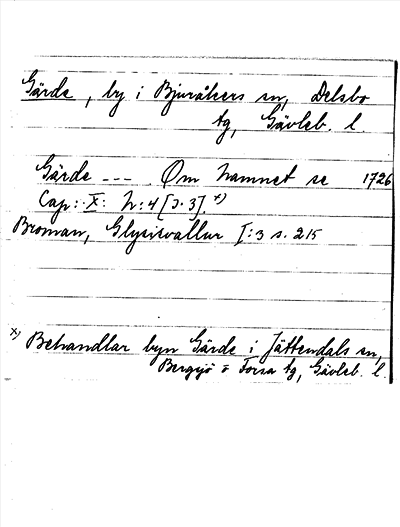 Gärde, by i Bjuråkers sn, Delsbo
tg, Gävleb. l.
Gärde --- . Om namnet se 1726
Cap: X: N:4 [ɔ: 3]. x)
Broman, Glysisvallur I:3 s. 215
x) Behandlar byn Gärde i Jättendals sn,
Bergsjö o Forsa tg, Gävleb. l.